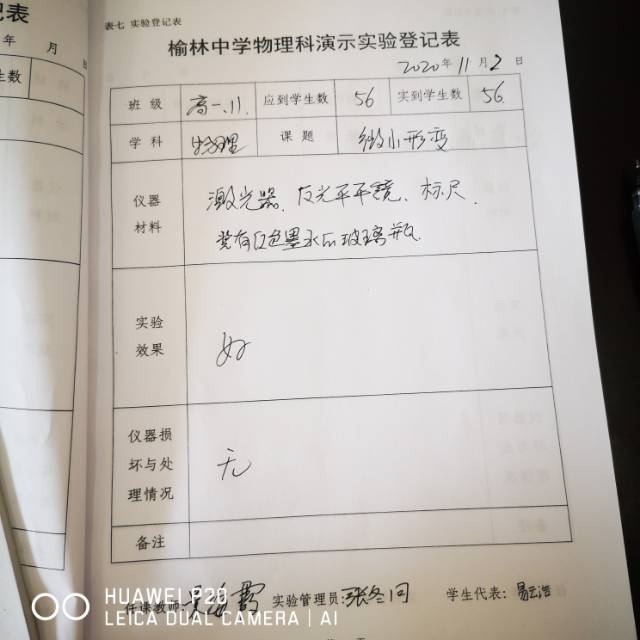 记表
年 月 日
生数
表七 实验登记表
榆林中学物理科演示实验登记表
2020年11月2日
班级 高一.11. 应到学生数 56 实到学生数 56.
学科 物理 课题 微小形变
仪器材料 激光器、反光平平镜、标尺、
装有红色墨水的玻璃瓶.
实验效果 好
仪器损坏与处理情况 无
备注
任课教师: 实验管理员: 学生代表:
HUAWEI P20
LEICA DUAL CAMERA | AI